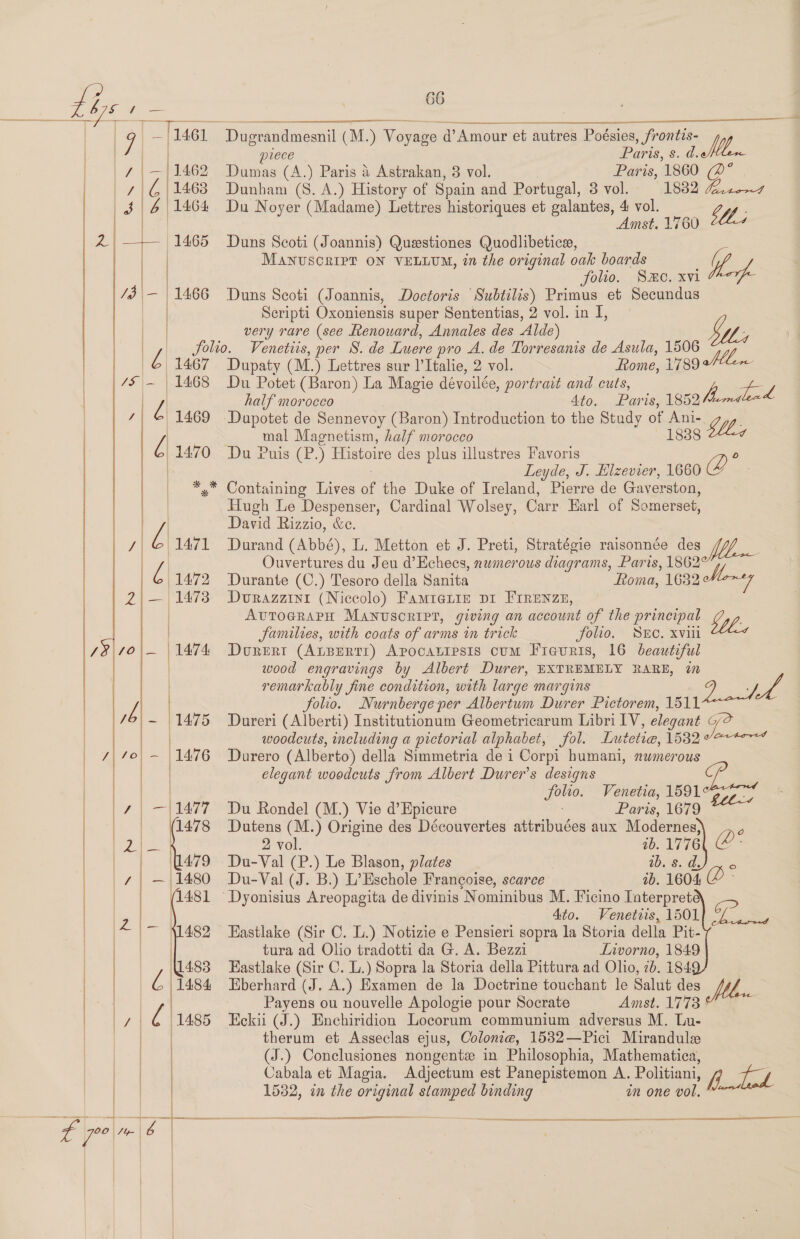 66
£675 1 —
9 – 1461 Dugrandmesnil (M.) Voyage d'Amour et autres Poésies, frontis-
piece Paris, s. d. Allen
1 – 1462 Dumas (A.) Paris à Astrakan, 3 vol. Paris, 1860
1 6 1463 Dunham (S. A.) History of Spain and Portugal, 3 vol. 1832
3 6 1464 Du Noyer (Madame) Lettres historiques et galantes, 4 vol.
Amst. 1760 Ellis
2 — — 1465 Duns Scoti (Joannis) Quæstiones Quodlibeticæ,
Manuscript on vellum, in the original oak boards
folio. Sæc. xvi Thorp
13 – 1466 Duns Scoti (Joannis, Doctoris Subtilis) Primus et Secundus
Scripti Oxoniensis super Sententias, 2 vol. in I,
very rare (see Renouard, Annales des Alde)
folio. Venetiis, per S. de Luere pro A. de Torresanis de Asula, 1506 Ellis
6 1467 Dupaty (M.) Lettres sur l'Italie, 2 vol. Rome, 1789 Allen
15 – 1468 Du Potet (Baron) La Magie dévoilée, portrait and cuts,
half morocco 4to. Paris, 1852 Bumstead
1 6 1469 Dupotet de Sennevoy (Baron) Introduction to the Study of Ani-
mal Magnetism, half morocco 1838 Ellis
6 1470 Du Puis (P.) Histoire des plus illustres Favoris
Leyde, J. Elzevier, 1660
*⁎* Containing Lives of the Duke of Ireland, Pierre de Gaverston,
Hugh Le Despenser, Cardinal Wolsey, Carr Earl of Somerset,
David Rizzio, &c.
1 6 1471 Durand (Abbé), L. Metton et J. Preti, Stratégie raisonnée des
Ouvertures du Jeu d'Echecs, numerous diagrams, Paris, 1862 Allen
6 1472 Durante (C.) Tesoro della Sanita Roma, 1632
2 – 1473 Durazzini (Niccolo) Famiglie di Firenze,
Autograph Manuscript, giving an account of the principal
families, with coats of arms in trick folio. Sec. xviii Ellis
18 10 – 1474 Dureri (Alberti) Apocalipsis cum Figuris, 16 beautiful
wood engravings by Albert Durer, EXTREMELY RARE, in
remarkably fine condition, with large margins
folio. Nurnberge per Albertum Durer Pictorem, 1511
16 – 1475 Dureri (Alberti) Institutionum Geometricarum Libri IV, elegant
woodcuts, including a pictorial alphabet, fol. Lutetiæ, 1532
1 10 – 1476 Durero (Alberto) della Simmetria de i Corpi humani, numerous
elegant woodcuts from Albert Durer's designs
folio. Venetia, 1591
1 – 1477 Du Rondel (M.) Vie d'Epicure Paris, 1679 Ellis
1478 Dutens (M.) Origine des Découvertes attribuées aux Modernes,
2 – 2 vol. ib. 1776
1479 Du-Val (P.) Le Blason, plates ib. s. d.
1 – 1480 Du-Val (J. B.) L'Eschole Françoise, scarce ib. 1604
1481 Dyonisius Areopagita de divinis Nominibus M. Ficino Interprete
4to. Venetiis, 1501
2 – 1482 Eastlake (Sir C. L.) Notizie e Pensieri sopra la Storia della Pit-
tura ad Olio tradotti da G. A. Bezzi Livorno, 1849
1483 Eastlake (Sir C. L.) Sopra la Storia della Pittura ad Olio, ib. 1849
6 1484 Eberhard (J. A.) Examen de la Doctrine touchant le Salut des
Payens ou nouvelle Apologie pour Socrate Amst. 1773 Allen
1 6 1485 Eckii (J.) Enchiridion Locorum communium adversus M. Lu-
therum et Asseclas ejus, Coloniæ, 1532—Pici Mirandulæ
(J.) Conclusiones nongentæ in Philosophia, Mathematica,
Cabala et Magia. Adjectum est Panepistemon A. Politiani,
1532, in the original stamped binding in one vol. Bumstead
£ 700 14 6